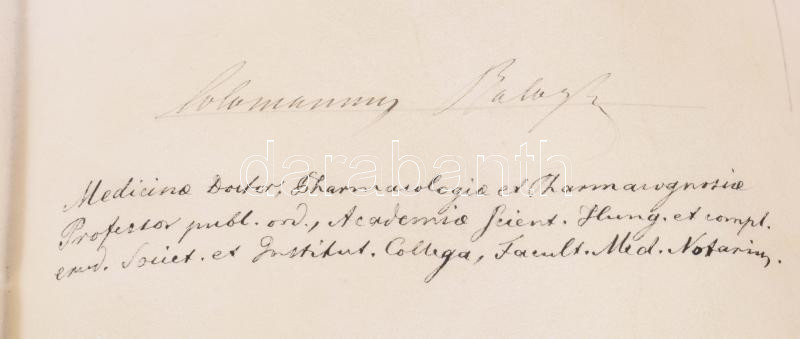 Colomannus Balogh
darabanth
Medicinæ Doctor, Pharmacologiæ et Pharmacognosiæ
Professor publ. ord., Academiæ Scient. Hung. et compl.
erud. Societ. et Institut. Collega, Facult. Med. Notarius.